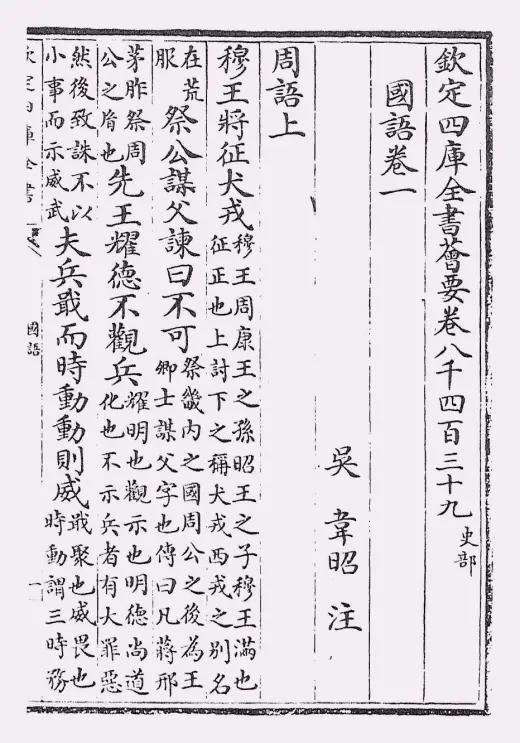 欽定四庫全書薈要卷八千四百三十九 史部
國語卷一
吳 韋昭 注
周語上
穆王將征犬戎 穆王周康王之孫昭王之子穆王滿也
征正也上討下之稱犬戎西戎之別名
在荒
服
祭公謀父諫曰不可 祭畿內之國周公之後為王
卿士謀父字也傳曰凡蔣邢
茅胙祭周
公之胤也
先王耀德不觀兵 耀明也觀示也明德尚道
化也不示兵者有大罪惡
然後致誅不以
小事而示威武
夫兵戢而時動動則威 戢聚也威畏也
時動謂三時務
欽定四庫全書
國語
一